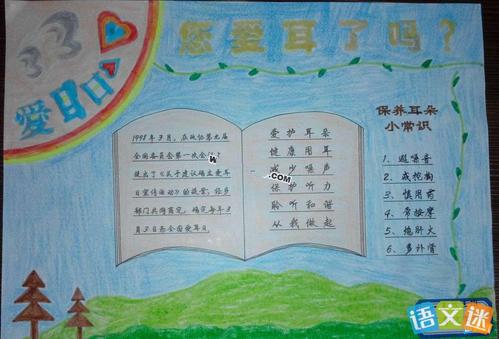 33
愛耳日
您爱耳了吗？
1998年3月，在政协第九届
全国委员会第一次会
提出了《关于建议确立爱耳
日宣传活动》的提案，经多
部门共同商定，确定每年3
月3日为全国爱耳日。
爱护耳朵
健康用耳
减少噪声
保护听力
聆听和谐
从我做起
W
.COM
保养耳朵
小常识
1、避噪音
2、戒挖掏
3、慎用药
4、常按摩
5、绝肝火
6、多补肾
语文迷